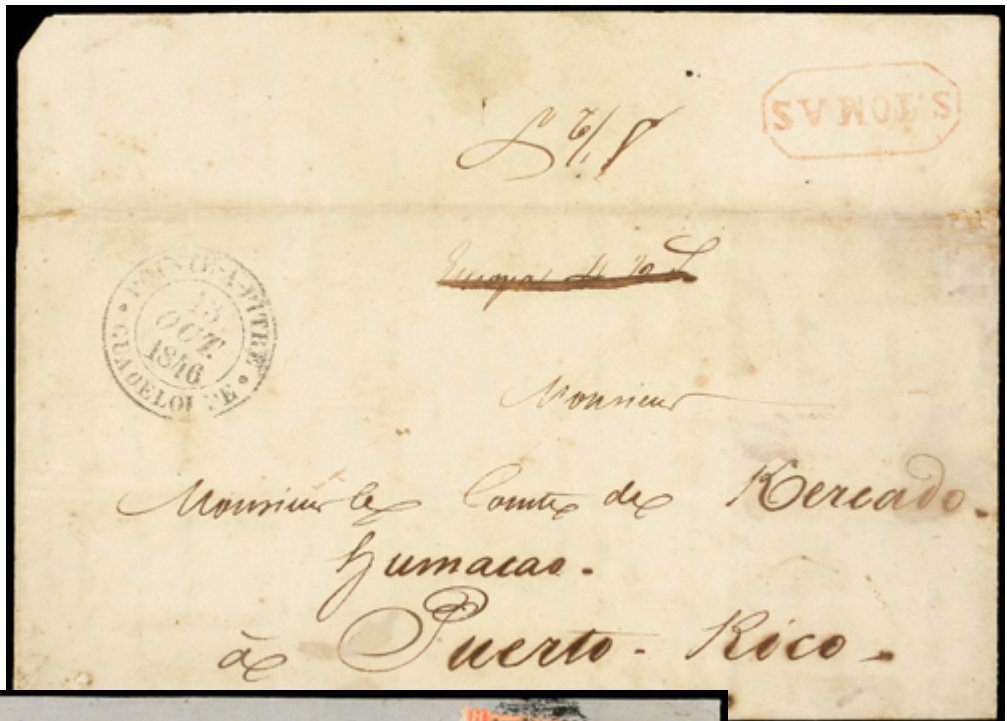 S. TOMAS
POINTE-A-PITRE
13
OCT.
1846
GUADELOUPE
Monsieur
Monsieur le Comte de Kercado.
Humacao.
à Puerto-Rico.